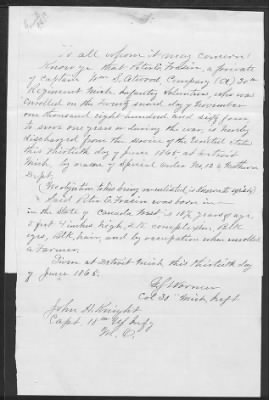 To all whom it may concern
Know ye that Peter A. Frasier, a private
of Captain Wm S. Atwood, Company (A) 30th
Regiment Mich. Infantry Volunteers, who was
enrolled on the twenty second day of November
one thousand eight hundred and sixty four
to serve one year or during the war, is hereby
discharged from the service of the United States
this thirtieth day of June 1865 at Detroit
Mich. by reason of Special Order No. 12 Northern
Dept.
(No objection to his being reenlisted is known to exist)
Said Peter A. Frasier was born in
in the State of Canada West is 18 years of age
5 feet inches high, complexion,
eyes, hair, and by occupation when enrolled
a Farmer.
Given at Detroit Mich this thirtieth day
of June 1865.
G S Wormer
Col 30 Mich Inft.
John H. Knight
Capt. 18th US Infy
M. O.